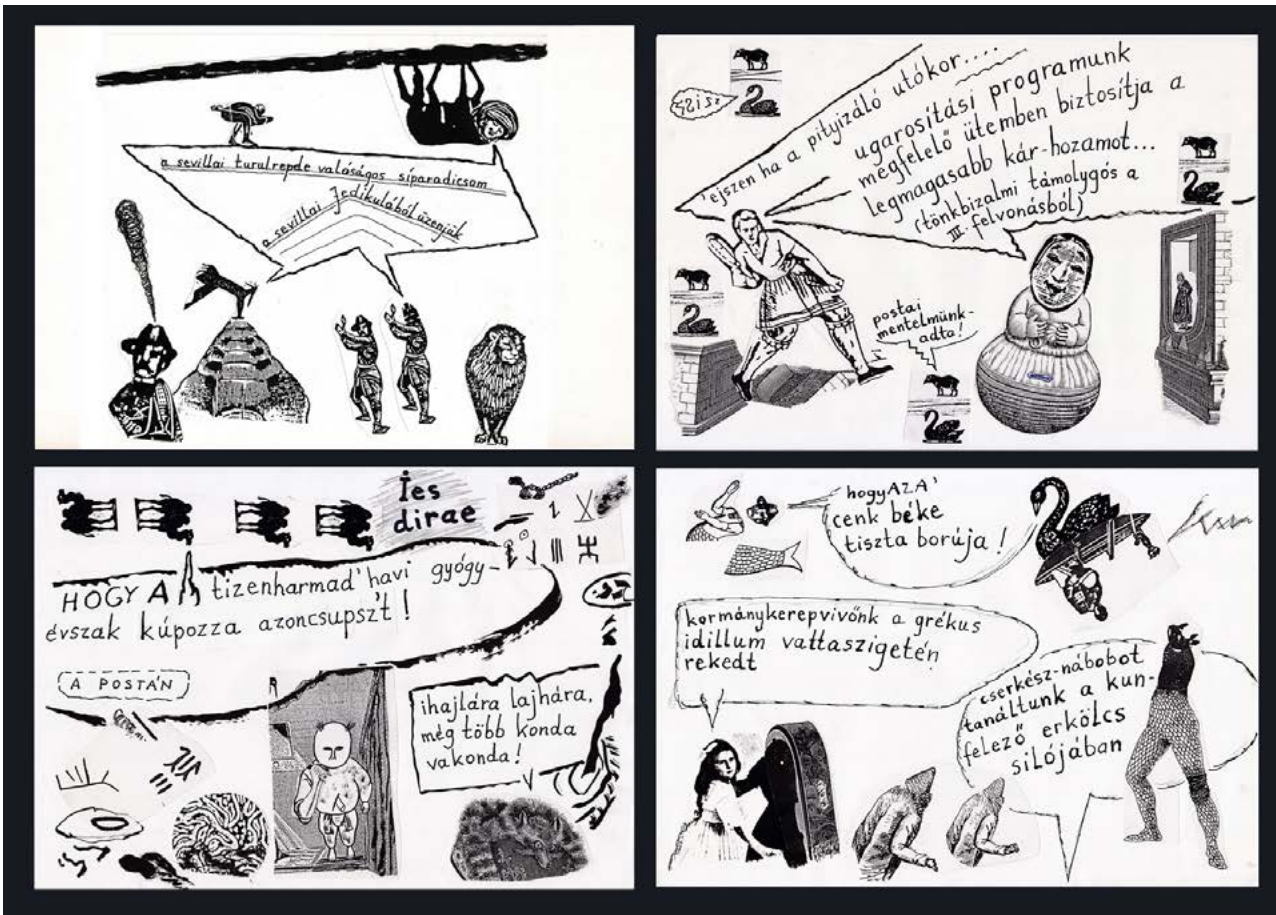 a sevillai turulrepde valóságos síparadicsom
a sevillai Jedikulából üzenjük
'ejszen ha a pityizáló utókor....
ugarosítási programunk
megfelelő ütemben biztosítja a
legmagasabb kár-hozamot...
(tönkbizalmi támolygós a
III. felvonásból)
postai
mentelmünk-
adta!
Íes
dirae
HOGY A tizenharmad'havi gyógy-
évszak kúpozza azoncsupszt!
A POSTÁN
ihajlára lajhára,
még több konda
vakonda!
hogyAZA'
cenk béke
tiszta borúja!
kormánykerepvivőnk a grékus
idillum vattaszigetén
rekedt
cserkész-nábobot
tanáltunk a kun-
felező erkölcs
silójában